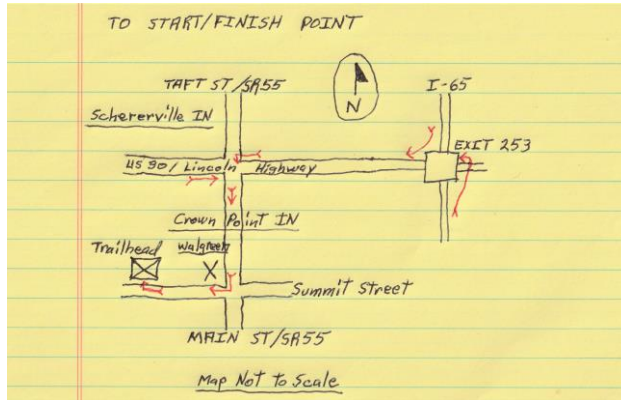 TO START/FINISH POINT
TAFT ST/SR55
I-65
N
Schererville IN
EXIT 253
US 90/Lincoln Highway
Crown Point IN
Trailhead
Walgreens
X
Summit Street
MAIN ST/SR55
Map Not to Scale